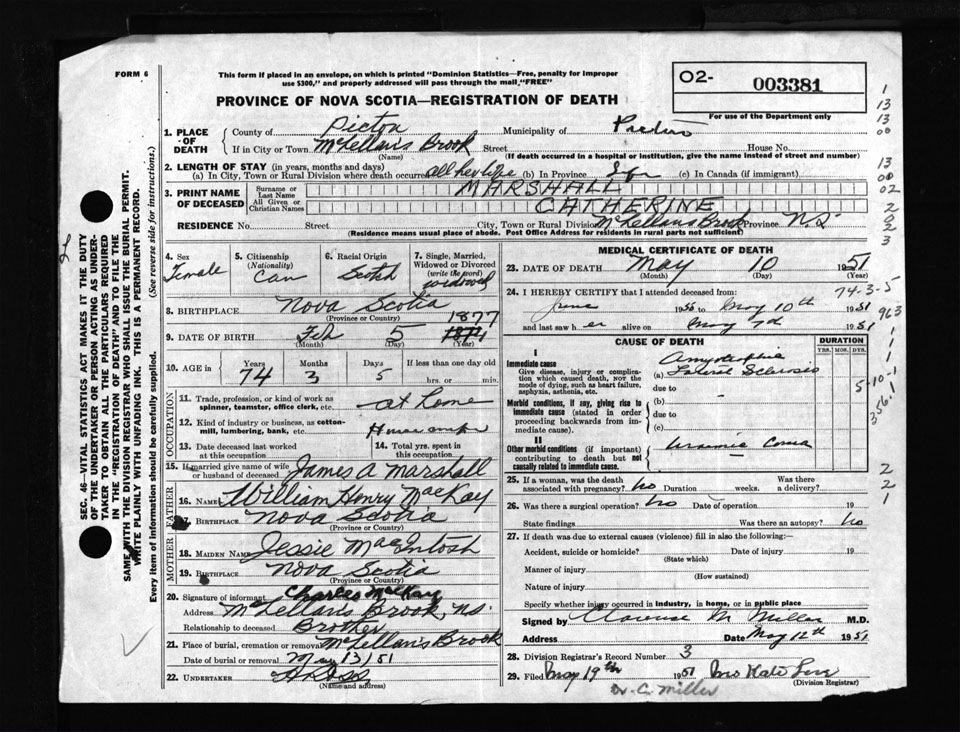 FORM 6
This form if placed in an envelope, on which is printed "Dominion Statistics—Free, penalty for improper
use $300," and properly addressed will pass through the mail "FREE"
O2-
003381
For use of the Department only
PROVINCE OF NOVA SCOTIA—REGISTRATION OF DEATH
1. PLACE OF DEATH { County of Picton Municipality of Pictou
If in City or Town McLellan's Brook Street House No.
(Name) (If death occurred in a hospital or institution, give the name instead of street and number)
2. LENGTH OF STAY (in years, months and days)
(a) In City, Town or Rural Division where death occurred all her life (b) In Province (c) In Canada (if immigrant)
3. PRINT NAME OF DECEASED { Surname or Last Name MARSHALL
All Given or Christian Names CATHERINE
RESIDENCE No. Street City, Town or Rural Division McLellans Brook Province N.S.
(Residence means usual place of abode. Post Office Address for residents in rural parts not sufficient)
4. Sex Female
5. Citizenship (Nationality) Can
6. Racial Origin Scotch
7. Single, Married, Widowed or Divorced (write the word) widowed
8. BIRTHPLACE Nova Scotia
(Province or Country)
9. DATE OF BIRTH Feb 5 1877
(Month) (Day) (Year)
10. AGE in Years Months Days If less than one day old
74 3 5 hrs. or min.
OCCUPATION
11. Trade, profession, or kind of work as spinner, teamster, office clerk, etc. at home
12. Kind of industry or business, as cotton-mill, lumbering, bank, etc.
13. Date deceased last worked at this occupation
14. Total yrs. spent in this occupation
15. If married give name of wife or husband of deceased James A Marshall
FATHER
16. Name William Henry MacKay
17. Birthplace Nova Scotia
(Province or Country)
MOTHER
18. MAIDEN NAME Jessie MacIntosh
19. Birthplace Nova Scotia
(Province or Country)
20. Signature of informant Charles MacKay
Address McLellan's Brook, N.S.
Relationship to deceased Brother
21. Place of burial, cremation or removal McLellan's Brook
Date of burial or removal May 13/51
22. UNDERTAKER
(Name and address)
MEDICAL CERTIFICATE OF DEATH
23. DATE OF DEATH May 10 1951
(Month) (Day) (Year)
74-3-5
24. I HEREBY CERTIFY that I attended deceased from:
June 1956 to May 10th 1951
and last saw her alive on May 7th 1951
CAUSE OF DEATH
DURATION
YRS. MOS. DYS.
I
Immediate cause
Give disease, injury or complication which caused death, NOT the mode of dying, such as heart failure, asphyxia, asthenia, etc.
(a) Amyotrophic Lateral Sclerosis
due to
Morbid conditions, if any, giving rise to immediate cause (stated in order proceeding backwards from immediate cause).
(b)
due to
(c)
II
Other morbid conditions (if important) contributing to death but not causally related to immediate cause.
Uraemic Coma
25. If a woman, was the death associated with pregnancy? No Duration weeks. Was there a delivery?
26. Was there a surgical operation? No Date of operation 19
State findings Was there an autopsy? No
27. If death was due to external causes (violence) fill in also the following:—
Accident, suicide or homicide? Date of injury 19
(State which)
Manner of injury
(How sustained)
Nature of injury
Specify whether injury occurred in industry, in home, or in public place
Signed by Clarence M. Miller M.D.
Address Date May 12th 1951
28. Division Registrar's Record Number 3
29. Filed May 19th 1951 Mrs Kate
(Division Registrar)
Dr. C. Miller
SEC. 46—VITAL STATISTICS ACT MAKES IT THE DUTY
OF THE UNDERTAKER OR PERSON ACTING AS UNDER-
TAKER TO OBTAIN ALL THE PARTICULARS REQUIRED
IN THE "REGISTRATION OF DEATH" AND TO FILE THE
SAME WITH THE DIVISION REGISTRAR WHO SHALL ISSUE THE BURIAL PERMIT.
WRITE PLAINLY WITH UNFADING INK. THIS IS A PERMANENT RECORD.
Every item of information should be carefully supplied. (See reverse side for instructions.)